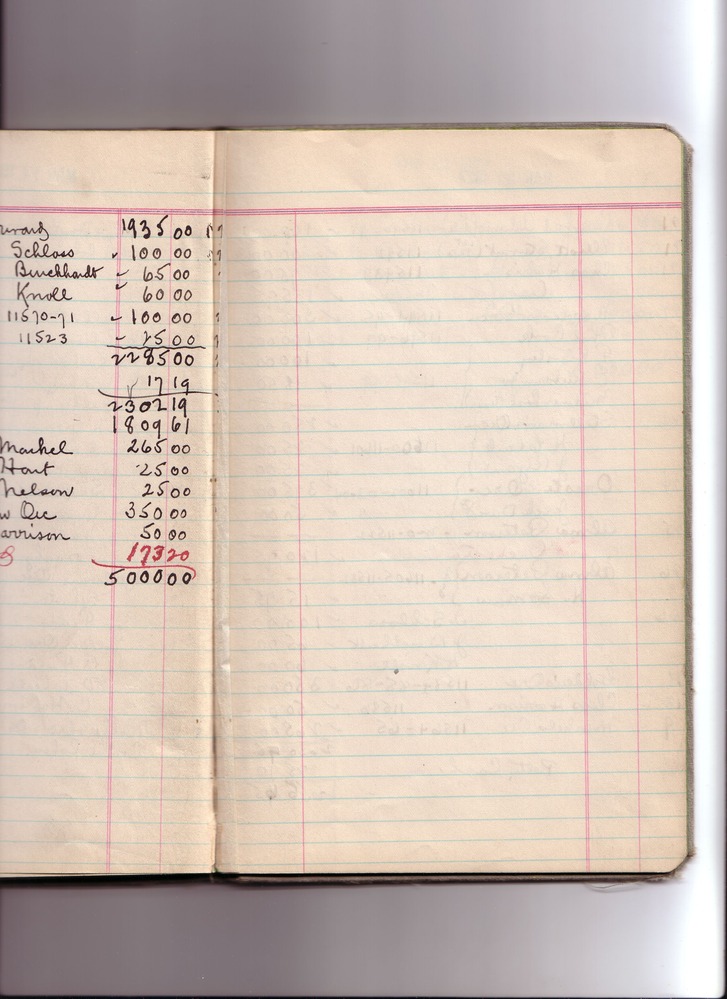 1935 00
Schloss 100 00
Burckhardt 65 00
Knoll 60 00
11570-71 100 00
11523 25 00
2285 00
17 19
2302 19
1809 61
Markel 265 00
25 00
Nelson 25 00
350 00
arrison 50 00
173 20
5000 00